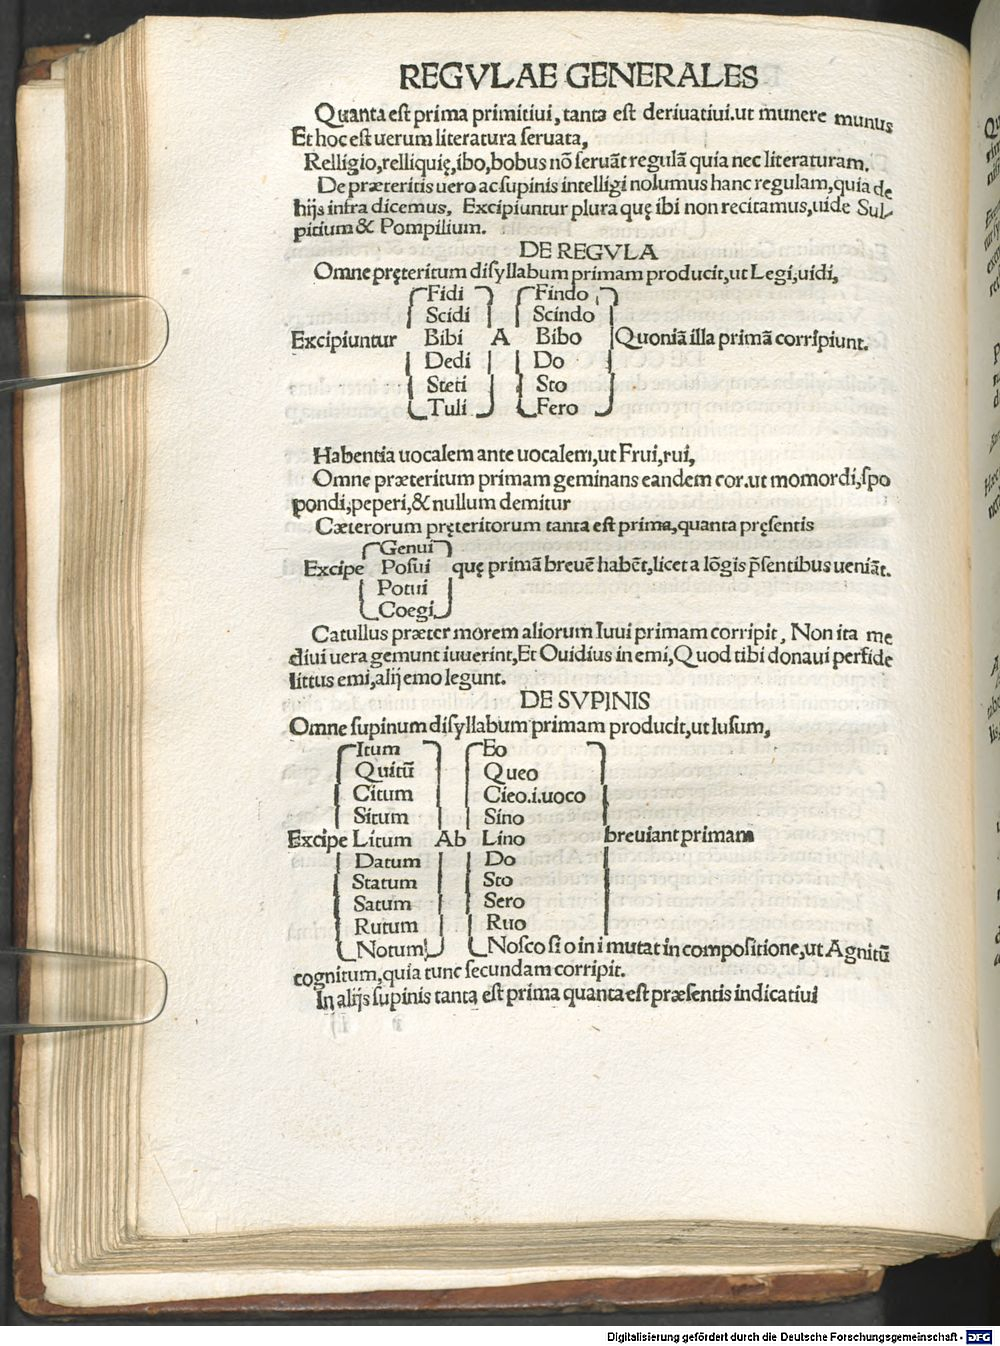 REGVLAE GENERALES
Quanta est prima primitiui, tanta est deriuatiui.ut munere munus
Et hoc est uerum literatura seruata,
Relligio,relliquię,ibo,bobus nõ seruãt regulã quia nec literaturam.
De præteritis uero ac supinis intelligi nolumus hanc regulam,quia de
hijs infra dicemus, Excipiuntur plura quę ibi non recitamus,uide Sul-
pitium & Pompilium.
DE REGVLA
Omne pręteritum disyllabum primam producit,ut Legi,uidi,
Fidi Findo
Scidi Scindo
Excipiuntur Bibi A Bibo Quoniã illa primã corripiunt.
Dedi Do
Steti Sto
Tuli Fero
Habentia uocalem ante uocalem,ut Frui,rui,
Omne præteritum primam geminans eandem cor.ut momordi,spo
pondi,peperi,& nullum demitur
Cæterorum pręteritorum tanta est prima,quanta pręsentis
Genui
Excipe Posui quę primã breuē habēt,licet a lõgis p̃sentibus ueniãt.
Potui
Coegi
Catullus præter morem aliorum Iuui primam corripit, Non ita me
diui uera gemunt iuuerint,Et Ouidius in emi,Quod tibi donaui perfide
littus emi,alij emo legunt.
DE SVPINIS
Omne supinum disyllabum primam producit,ut lusum,
Itum Eo
Quitũ Queo
Citum Cieo.i.uoco
Situm Sino
Excipe Litum Ab Lino breuiant primam
Datum Do
Statum Sto
Satum Sero
Rutum Ruo
Notum Nosco si o in i mutat in compositione,ut Agnitũ
cognitum,quia tunc secundam corripit.
In alijs supinis tanta est prima quanta est præsentis indicatiui
Digitalisierung gefördert durch die Deutsche Forschungsgemeinschaft - DFG